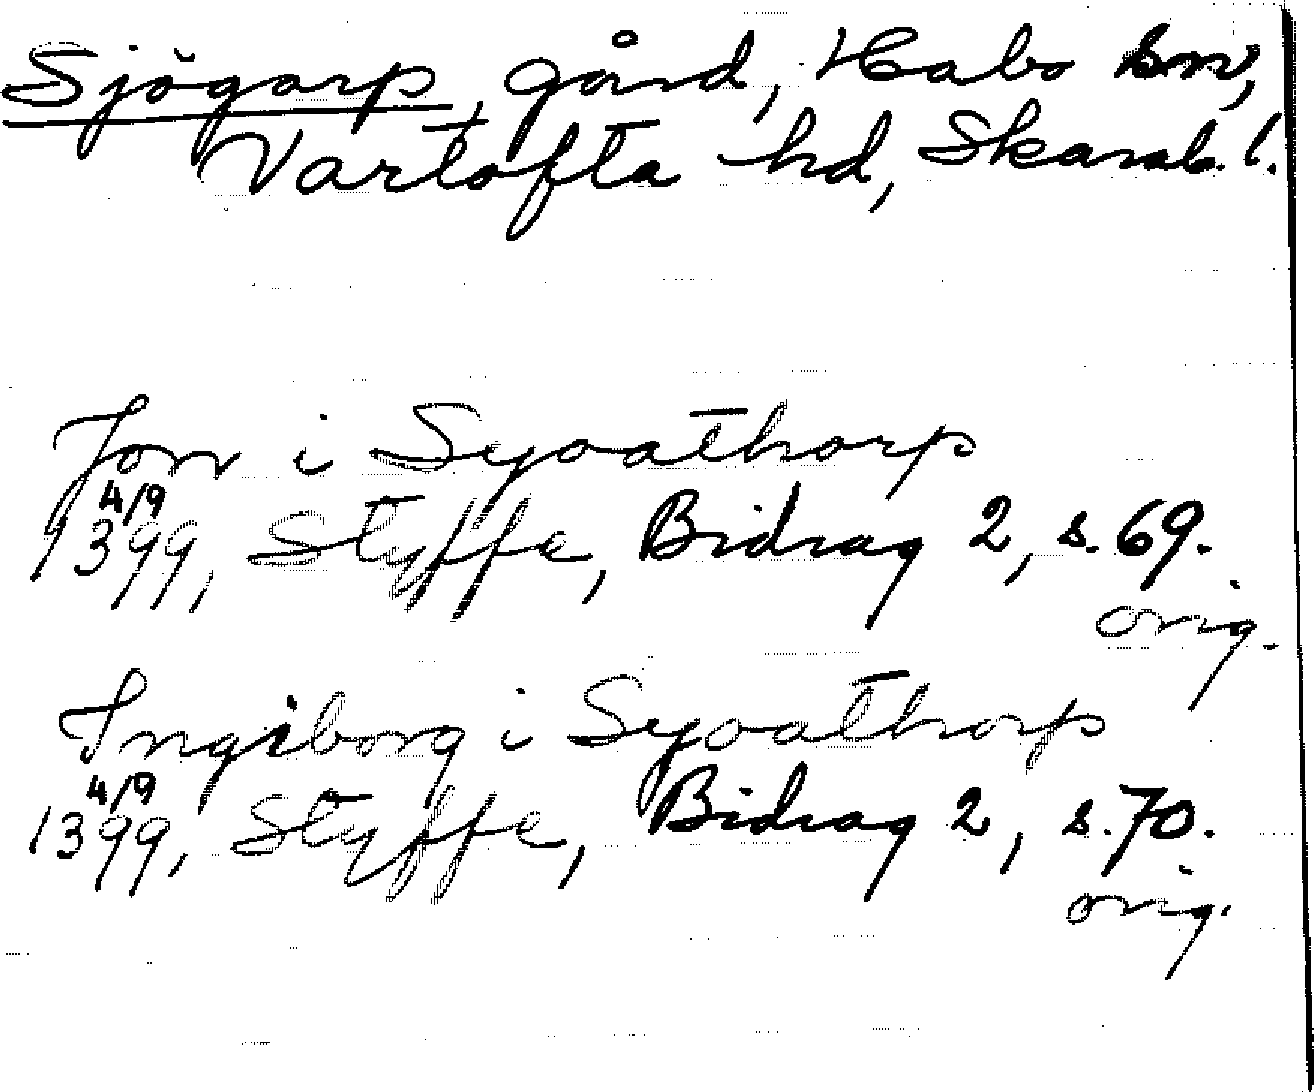 Sjögarp, gård, Habo sn,
Vartofta hd, Skarab. l.
Jon i Syoathorp
4/9
1399, Styffe, Bidrag 2, s. 69.
orig.
Ingiborg i Syoathorp
4/9
1399, Styffe, Bidrag 2, s. 70.
orig.